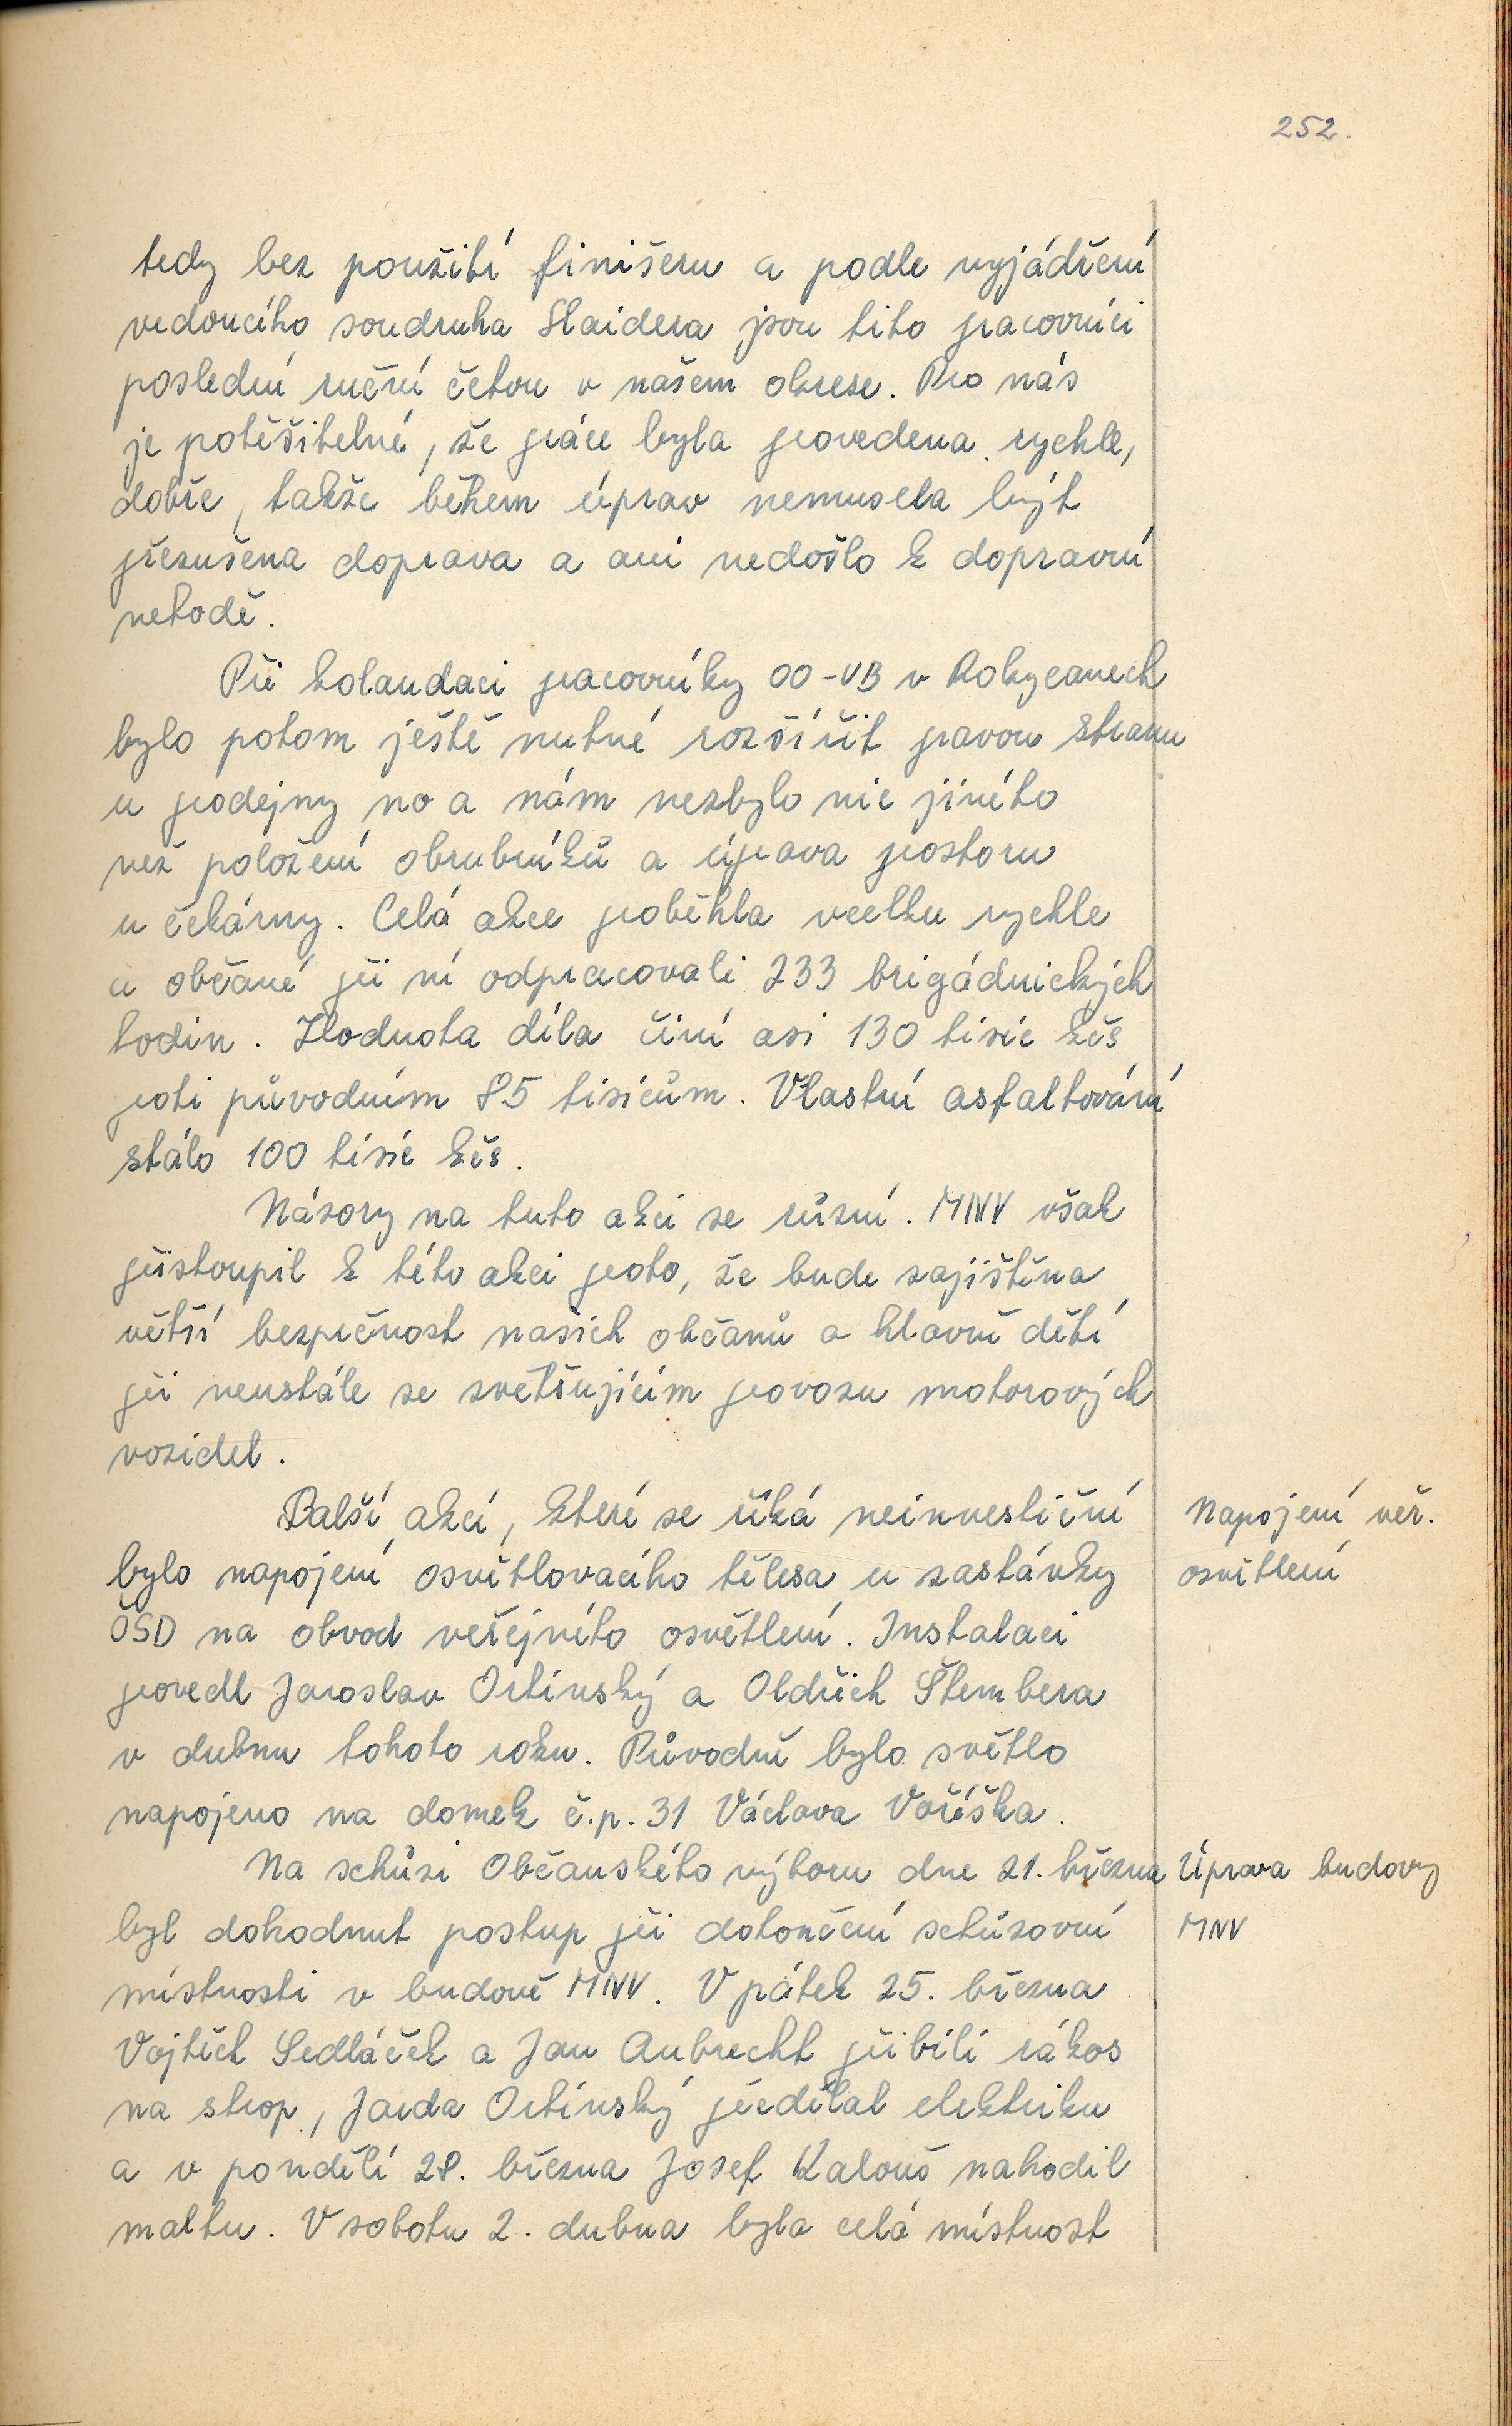 252.
tedy bez použití finišeru a podle vyjádření
vedoucího soudruha Haidera jsou tito pracovníci
poslední ruční četou v našem okrese. Pro nás
je potěšitelné, že práce byla provedena rychle,
dobře, takže během úprav nemusela být
přerušena doprava a ani nedošlo k dopravní
nehodě.
Při kolaudaci pracovníky OO-VB v Rokycanech
bylo potom ještě nutné rozšířit pravou stranu
u prodejny no a nám nezbylo nic jiného
než položení obrubníků a úprava prostoru
u čekárny. Celá akce proběhla vcelku rychle
a občané při ní odpracovali 233 brigádnických
hodin. Hodnota díla činí asi 130 tisíc kčs
proti původním 85 tisícům. Vlastní asfaltování
stálo 100 tisíc kčs.
Názory na tuto akci se různí. MNV však
přistoupil k této akci proto, že bude zajištěna
větší bezpečnost našich občanů a hlavně dětí
při neustále se zvětšujícím provozu motorových
vozidel.
Další akcí, které se říká neinvestiční
Napojení veř.
bylo napojení osvětlovacího tělesa u zastávky
osvětlení
ČSD na obvod veřejného osvětlení. Instalaci
provedl Jaroslav Ortinský a Oldřich Štembera
v dubnu tohoto roku. Původně bylo světlo
napojeno na domek č.p. 31 Václava Voříška.
Na schůzi Občanského výboru dne 21. března
Úprava budovy
byl dohodnut postup při dokončení schůzovní
MNV
místnosti v budově MNV. V pátek 25. března
Vojtěch Sedláček a Jan Aubrecht přibili rákos
na strop, Jarda Ortinský předělal elektriku
a v pondělí 28. března Josef Kalouš nahodil
maltu. V sobotu 2. dubna byla celá místnost